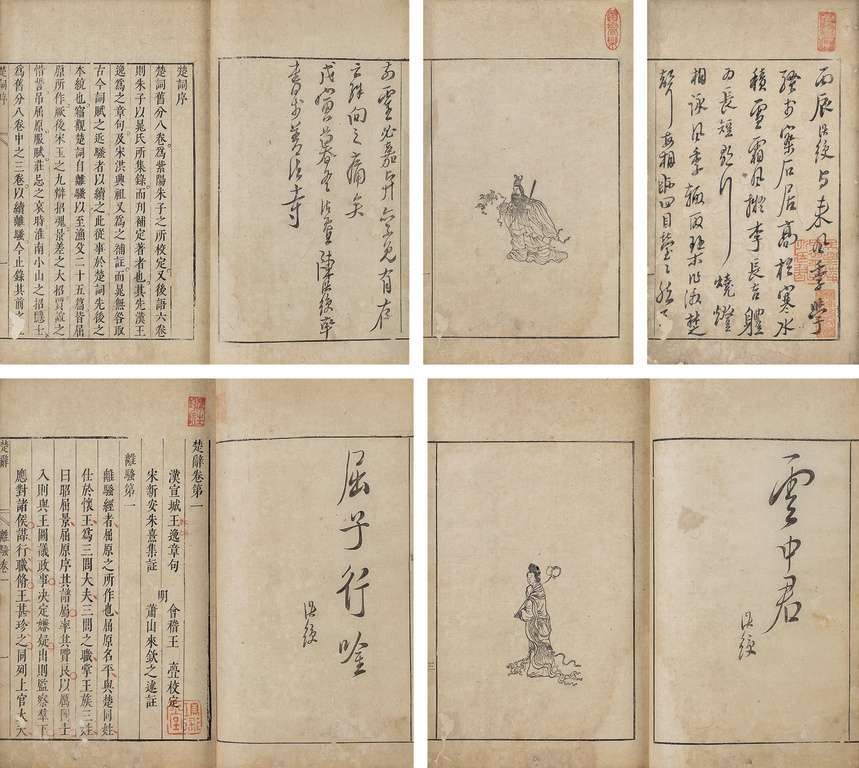 丙辰洪綬與來風季學
騷於松石居高梧寒水
積雪霜風擬李長吉體
為長短歌行燒燈
相詠風季輒取琴作激楚
聲每相視四目瑩瑩然下
靈必嘉與亦免有存
亡殊向之痛矣
戊寅暮冬陳洪綬率
書於善法寺
楚詞序
楚詞舊分八卷爲紫陽朱子之所校定又後語六卷
則朱子以晁氏所集錄而刊補定著者也其先漢王
逸爲之章句及宋洪興祖又爲之補註而晁無咎取
古今詞賦之近騷者以續之此從事於楚詞先後之
本統也竊觀楚詞自離騷以至漁父二十五篇皆屈
原所作厥後宋玉之九辯招魂景差之大招賈誼之
惜誓弔屈原服賦莊忌之哀時淮南小山之招隱士
爲舊分八卷中之三卷以續離騷今止錄其前之
楚詞序
雲中君
洪綬
屈子行吟
洪綬
楚辭卷第一
漢宣城王逸章句
宋新安朱熹集註
明
會稽王亹校定
蕭山來欽之述註
離騷第一
離騷經者屈原之所作也屈原名平與楚同姓
仕於懷王爲三閭大夫三閭之職掌王族三姓
曰昭屈景屈原序其譜屬率其賢良以厲國士
入則與王圖議政事決定嫌疑出則監察羣下
應對諸侯謀行職脩王甚珍之同列上官大夫
楚辭
離騷卷一